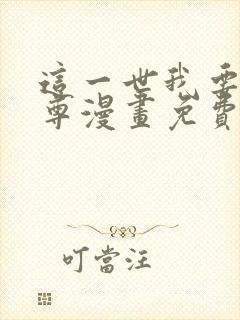 這一世我要
尊漫畫免費
叮當汪